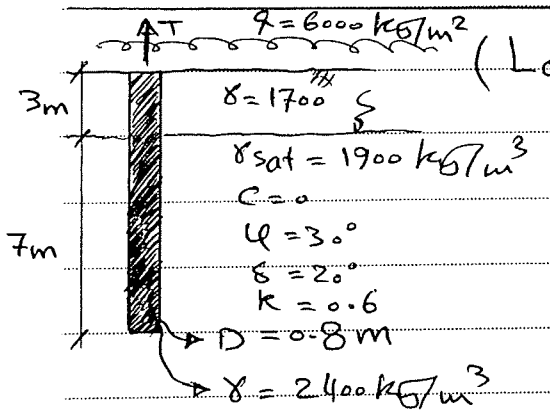 T
q = 6000 kg/m²
(Lo
3m
γ = 1700
γsat = 1900 kg/m³
C = 0
φ = 30°
7m
δ = 20°
k = 0.6
D = 0.8 m
γ = 2400 kg/m³